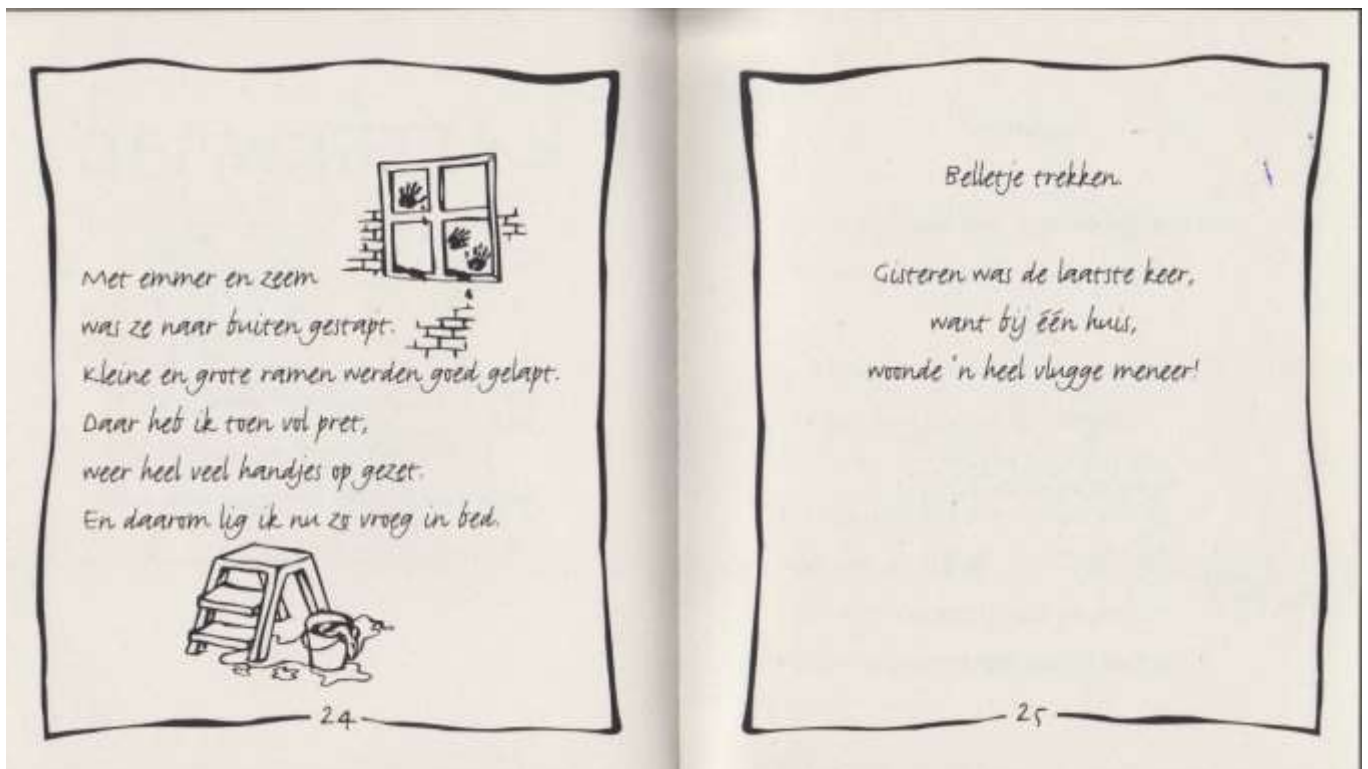 Met emmer en zeem
was ze naar buiten gestapt.
Kleine en grote ramen werden goed gelapt.
Daar heb ik toen vol pret,
weer heel veel handjes op gezet.
En daarom lig ik nu zo vroeg in bed.
24
Belletje trekken.
Gisteren was de laatste keer,
want bij één huis,
woonde 'n heel vlugge meneer!
25